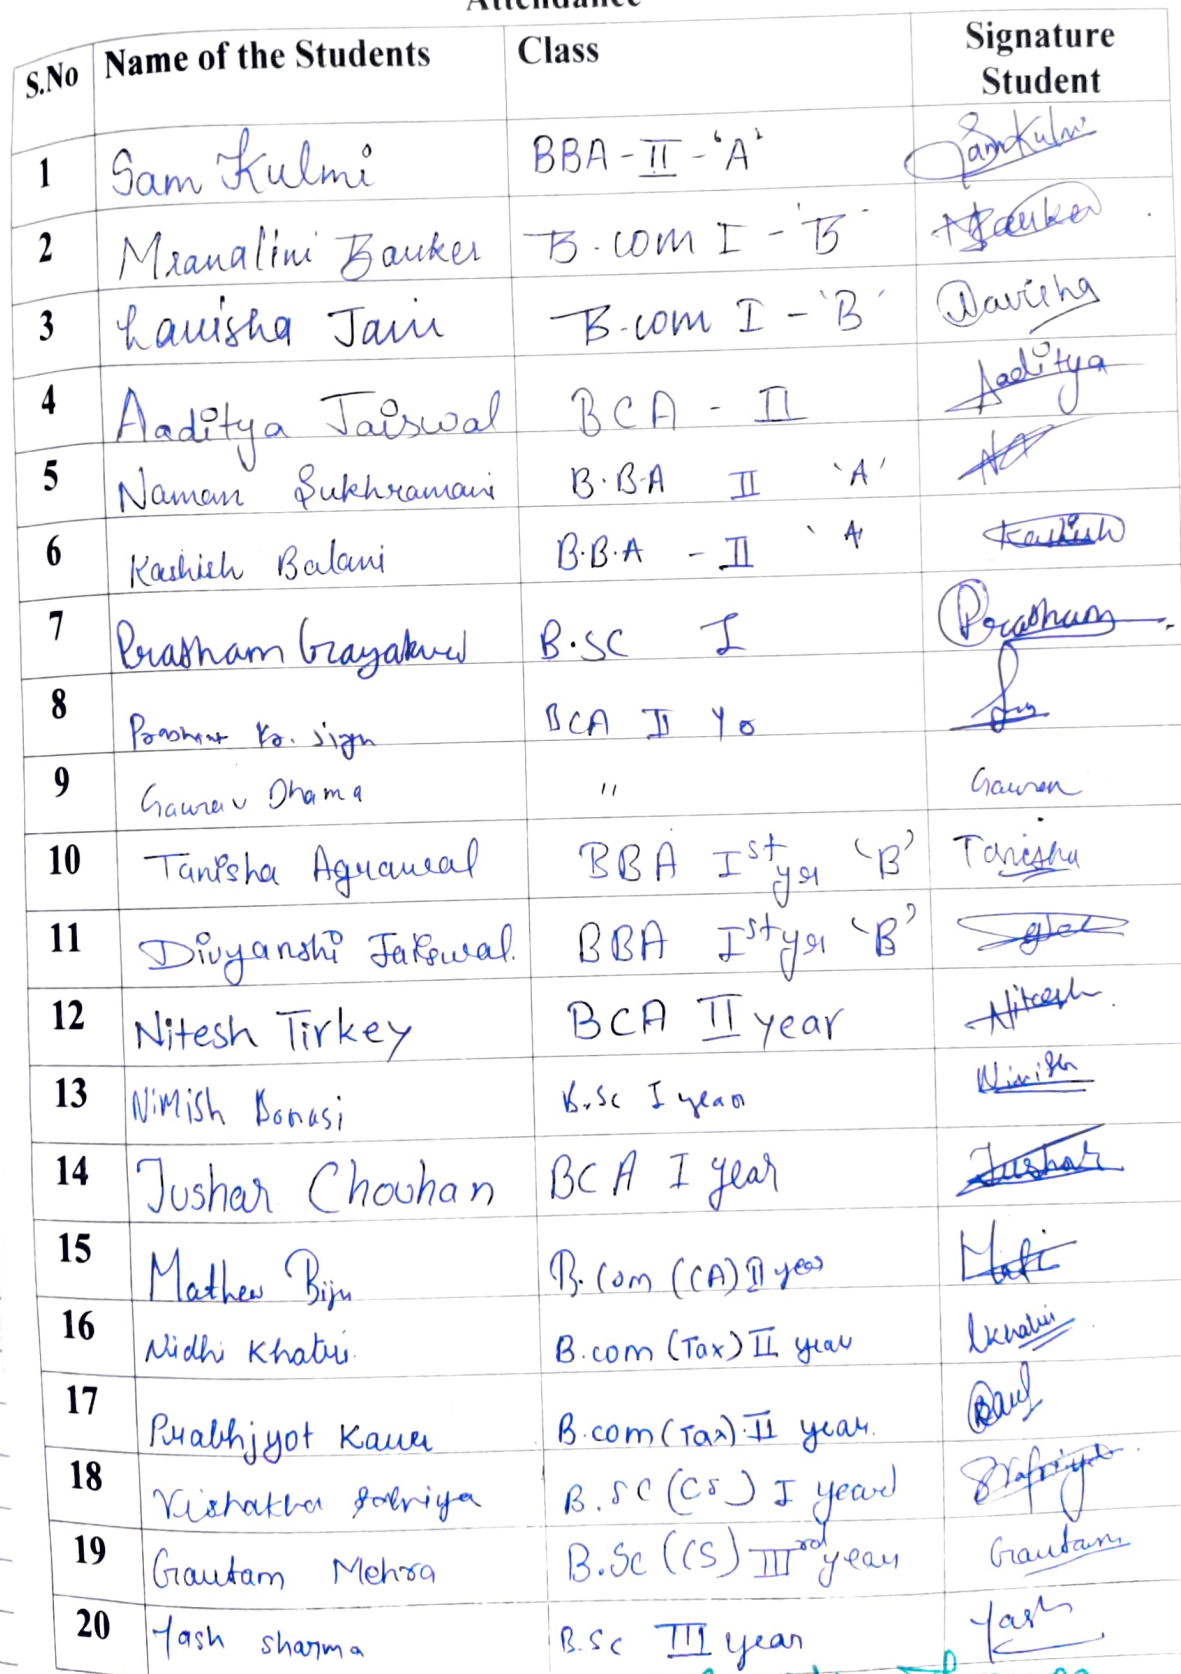 Attendance
S.No Name of the Students Class Signature Student
1 Sam Kulmi BBA - II - 'A' Sam Kulmi
2 Mranalini Bauker B.com I - 'B'
3 Lavisha Jain B.com I - 'B' Lavisha
4 Aaditya Jaiswal BCA - II Aaditya
5 Naman Sukhramani B.B.A II 'A'
6 Kashish Balani B.B.A - II 'A' Kashish
7 Prasham Grayakwd B.SC I Prasham
8 Kr. BCA II
9 Gaurav Dhama " Gaurav
10 Tanisha Agrawal BBA Ist yr 'B' Tanisha
11 Divyanshi Jaiswal. BBA Ist yr 'B'
12 Nitesh Tirkey BCA II year Nitesh
13 Nimish Bonasi B.Sc I year Nimish
14 Tushar Chouhan BCA I year Tushar
15 Mathew Biju B.Com (CA) II year
16 Nidhi Khatri. B.com (Tax) II year Khatri
17 Prabhjyot Kaur B.com (Tax) II year.
18 Vishakha B.SC (CS) I year
19 Gautam Mehra B.Sc (CS) IIIrd year Gautam
20 Yash Sharma B.Sc III year Yash